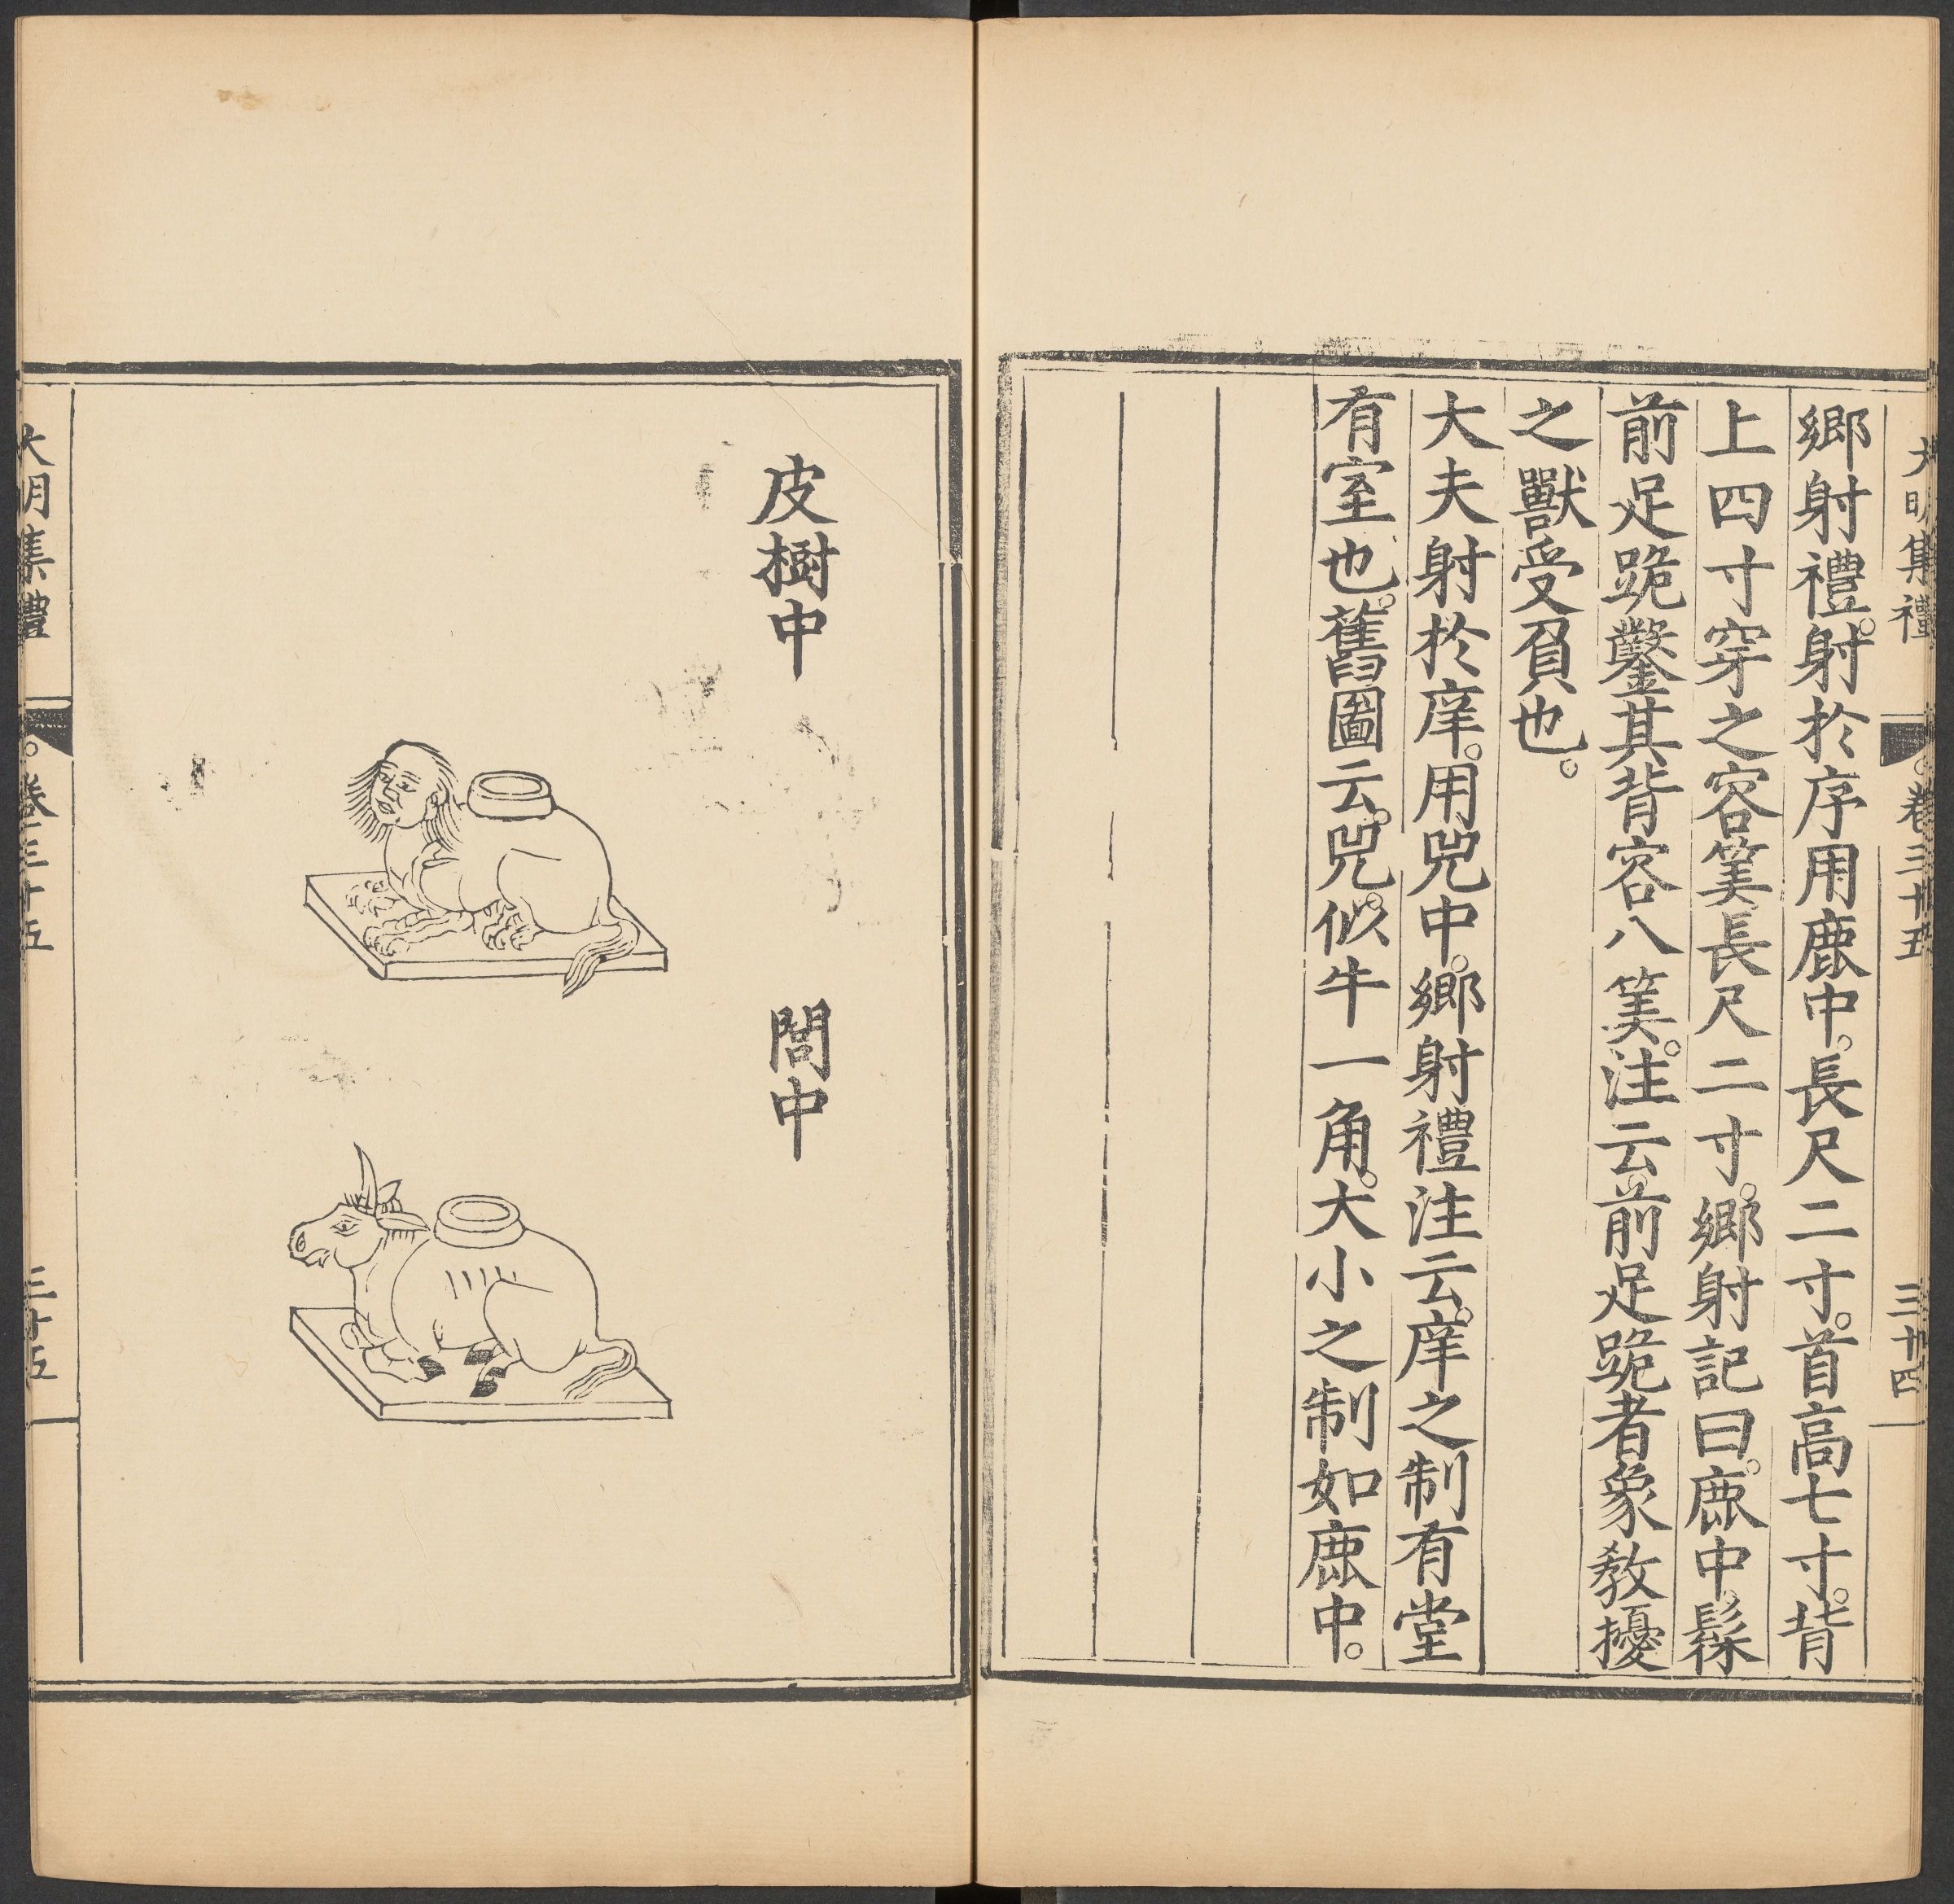 大明集禮 卷三十五 三十四
鄉射禮。射於序用鹿中。長尺二寸。首高七寸。背
上四寸穿之容筭長尺二寸。鄉射記曰。鹿中。髹
前足跪鑿其背容八筭。注云前足跪者象敎擾
之獸受負也。
大夫射於庠。用兕中。鄉射禮注云。庠之制有堂
有室也。舊圖云。兕。似牛一角。大小之制如鹿中。
皮樹中
閭中
大明集禮 卷三十五 三十五